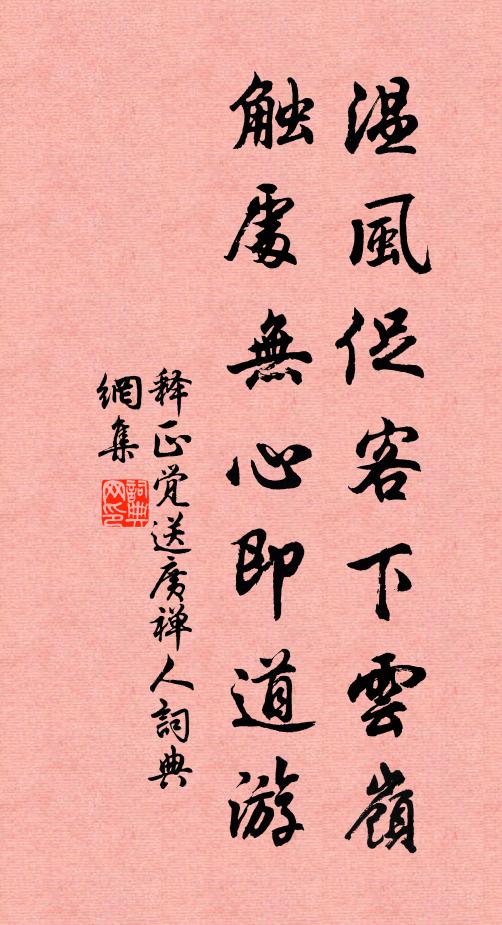 温風促客下雲嶺
触處無心即道游
释正觉送廣禅人詞典
網集
詞典
网印